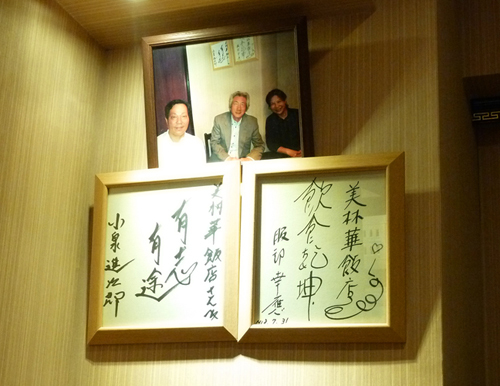 美林華飯店さん江
有志
有途
小泉進次郎
美林華飯店
飲食乾坤
服部幸應